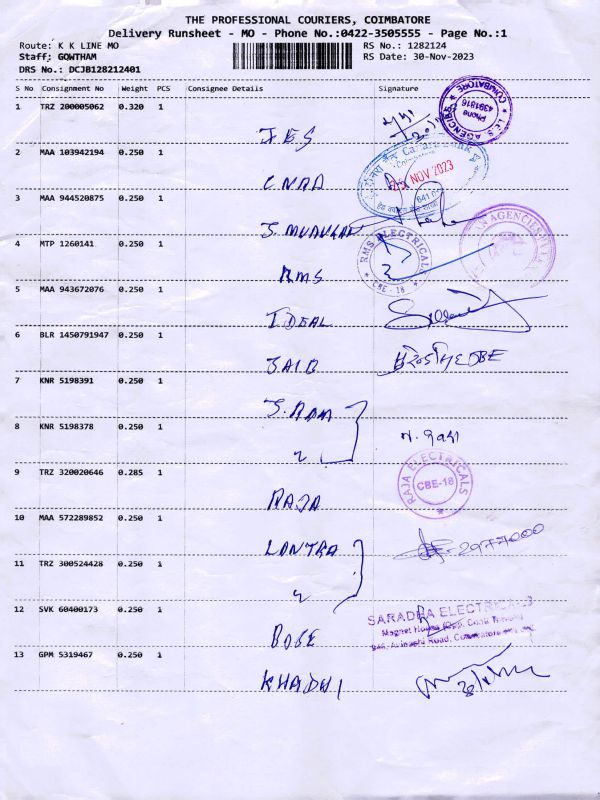 THE PROFESSIONAL COURIERS, COIMBATORE
Delivery Runsheet - MO - Phone No.:0422-3505555 - Page No.:1
Route: K K LINE MO RS No.: 1282124
Staff: GOWTHAM RS Date: 30-Nov-2023
DRS No.: DCJB128212401
S No Consignment No Weight PCS Consignee Details Signature
1 TRZ 200005062 0.320 1
JES
I.C.S AGENCIES COIMBATORE
Phone 4391816
2 MAA 103942194 0.250 1
CNRA
Canara Bank
NOV 2023
3 MAA 944520875 0.250 1
4 MTP 1260141 0.250 1
RMS
RMS ELECTRICALS CBE - 18
5 MAA 943672076 0.250 1
IDEAL
6 BLR 1450791947 0.250 1
7 KNR 5198391 0.250 1
S. RAM
8 KNR 5198378 0.250 1
"
9 TRZ 320020646 0.285 1
RAJA
RAJA ELECTRICALS CBE-18
10 MAA 572289852 0.250 1
LANTRA
2977000
11 TRZ 300524428 0.250 1
"
12 SVK 60400173 0.250 1
BOSE
SARADHA ELECTRICALS
Road, Coimbatore
13 GPM 5319467 0.250 1
KHADHI